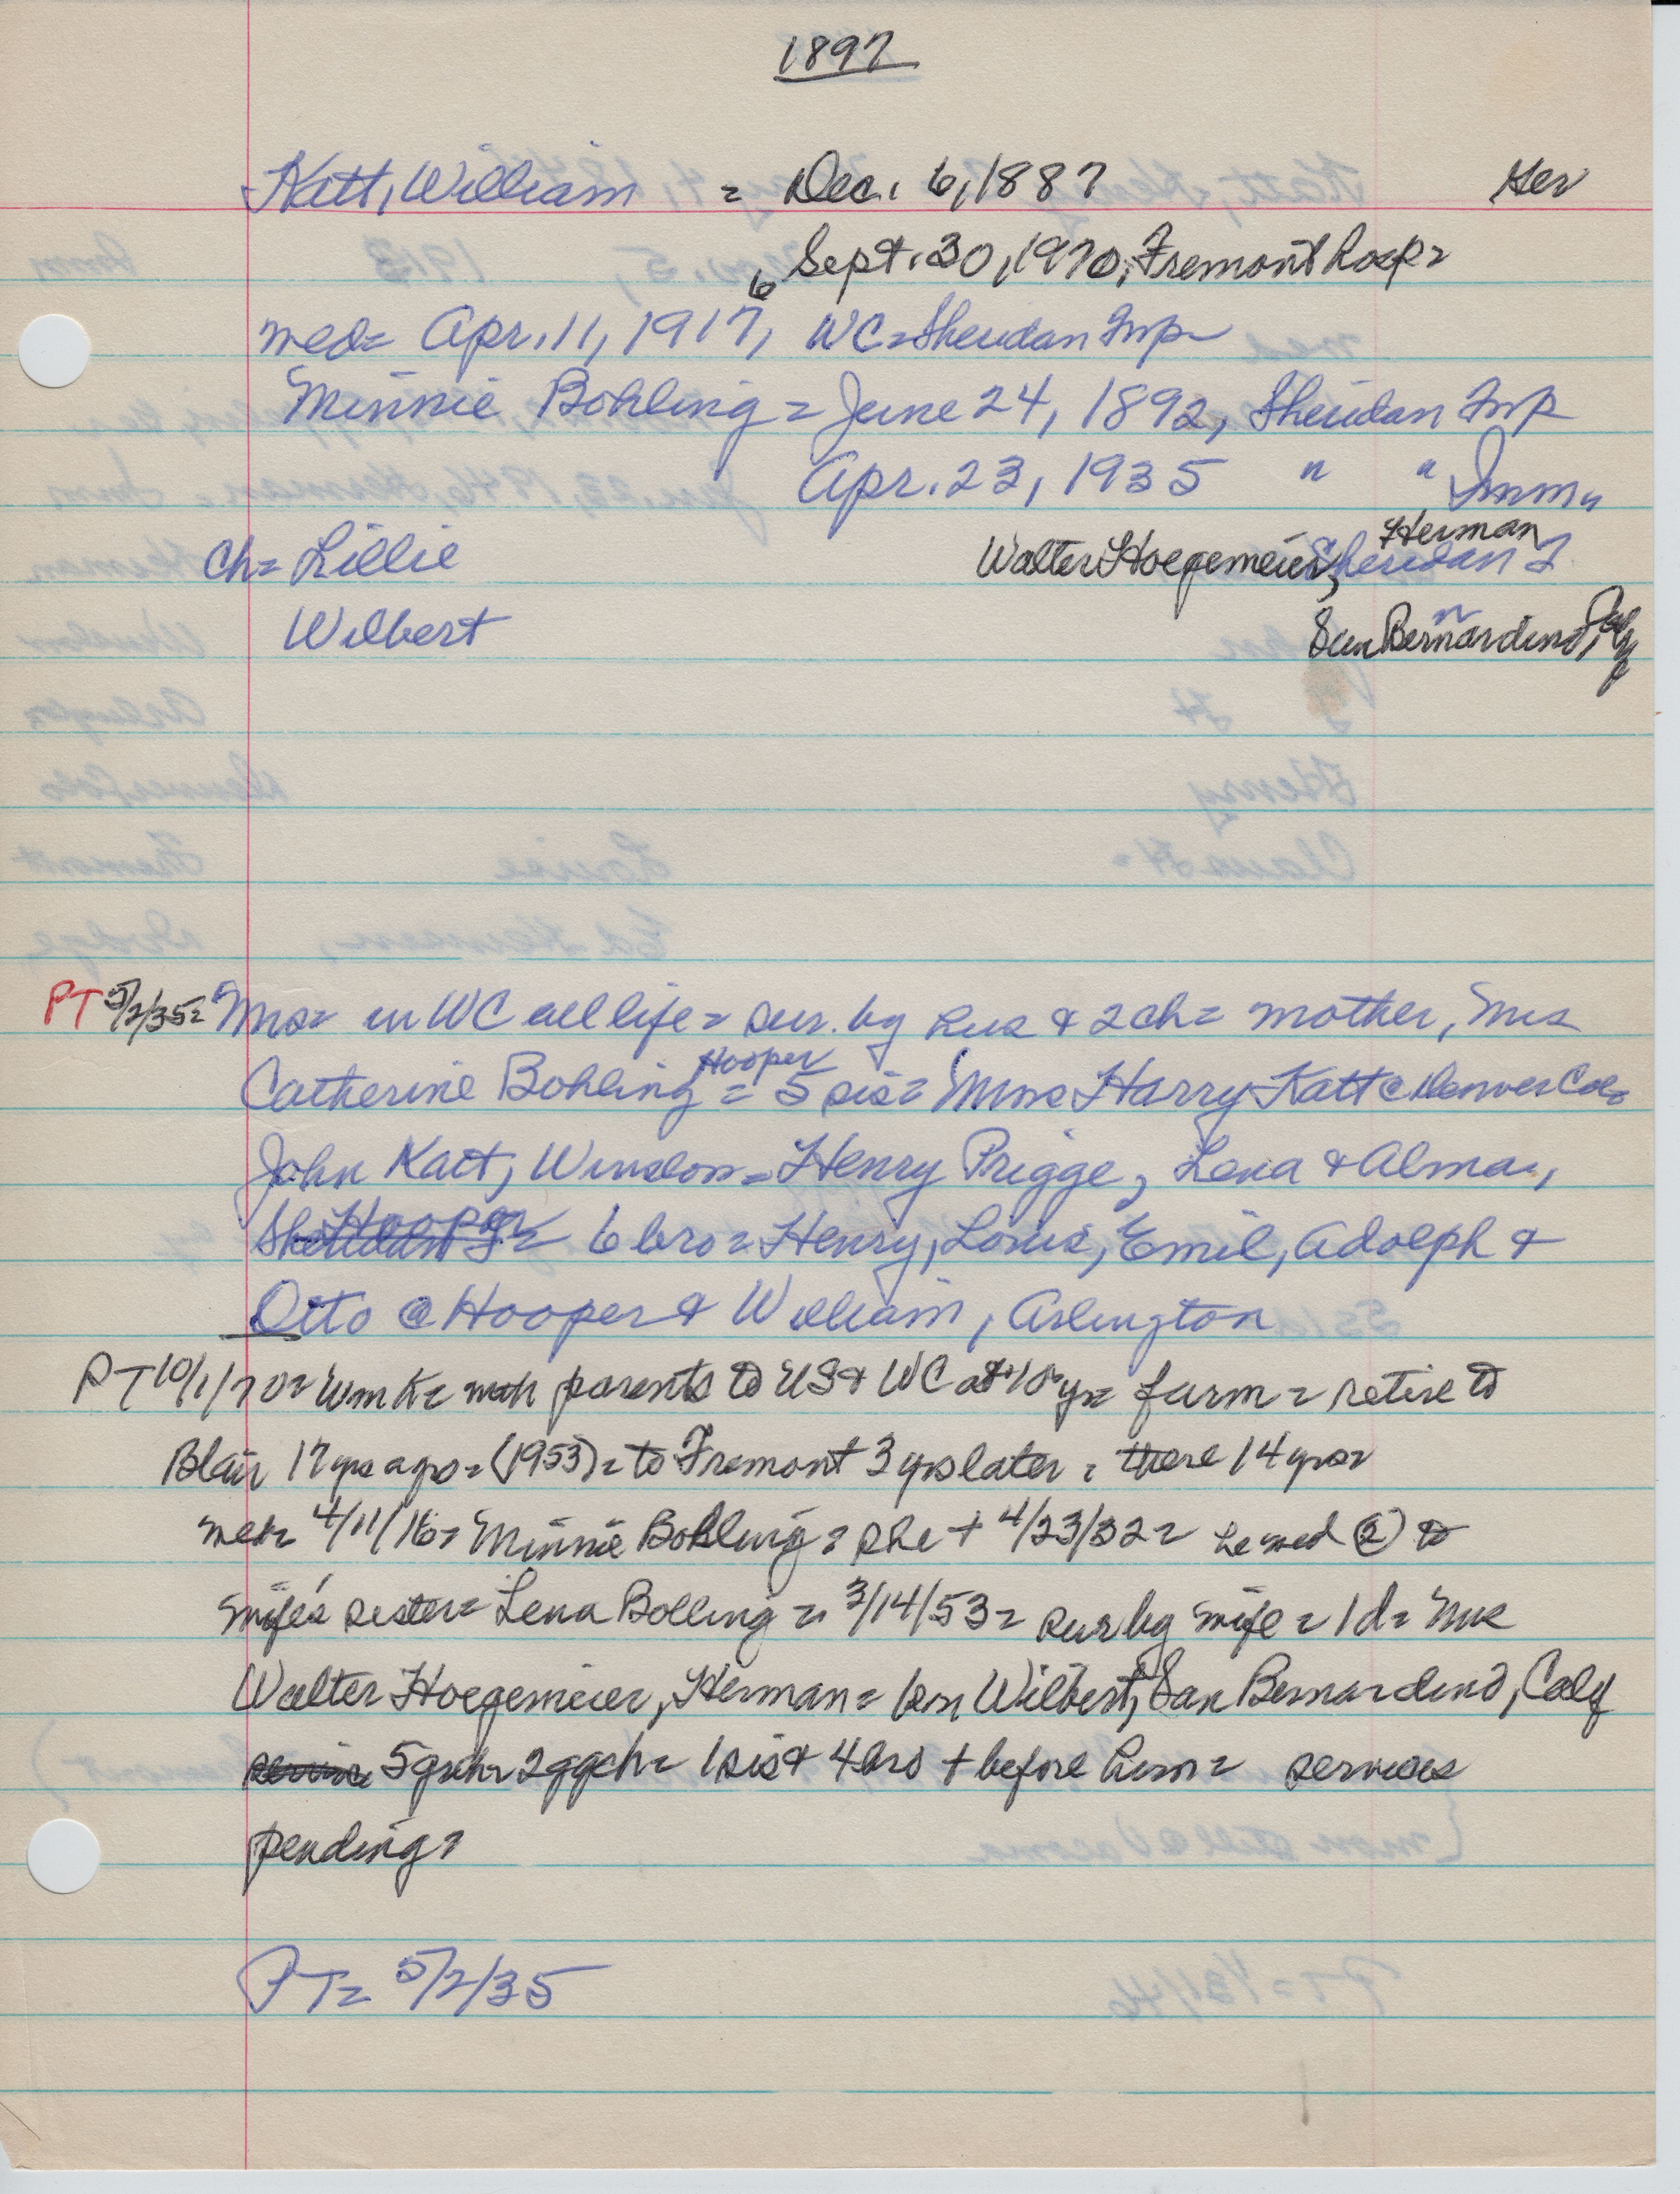 1897
Katt, William = Dec. 6, 1887 Ger
Sept. 30, 1970, Fremont Hosp=
6
med= Apr. 11, 1917, WC=Sheridan Twp=
Minnie Bohling = June 24, 1892, Sheridan Twp
Apr. 23, 1935 " " Imm"
Herman
ch= Lillie Walter Hoegemeier, Sheridan T.
Wilbert San Bernardino, Calif
PT 5/2/35= Mrs= in WC all life= sur. by hus & 2 ch= mother, Mrs
Hooper
Catherine Bohling = 5 sis= Mrs Harry Katt @ Denver Colo
John Katt, Winslow= Henry Prigge, Lena & Alma,
6 bro= Henry, Louis, Emil, Adolph &
Otto @ Hooper & William, Arlington
PT 10/1/70= Wm K= with parents to US & WC at 10 yr= farm= retire to
Blair 17 yrs ago= (1953)= to Fremont 3 yrs later = there 14 yrs=
med= 4/11/16= Minnie Bohling= she + 4/23/32= he med (2) to
wife's sister= Lena Bolling = 3/14/53= sur by wife = 1 d= Mrs
Walter Hoegemeier, Herman= son Wilbert, San Bernardino, Calif
service 5 gch= 2 ggch= 1 sis & 4 bro + before him= services
pending=
PT= 5/2/35